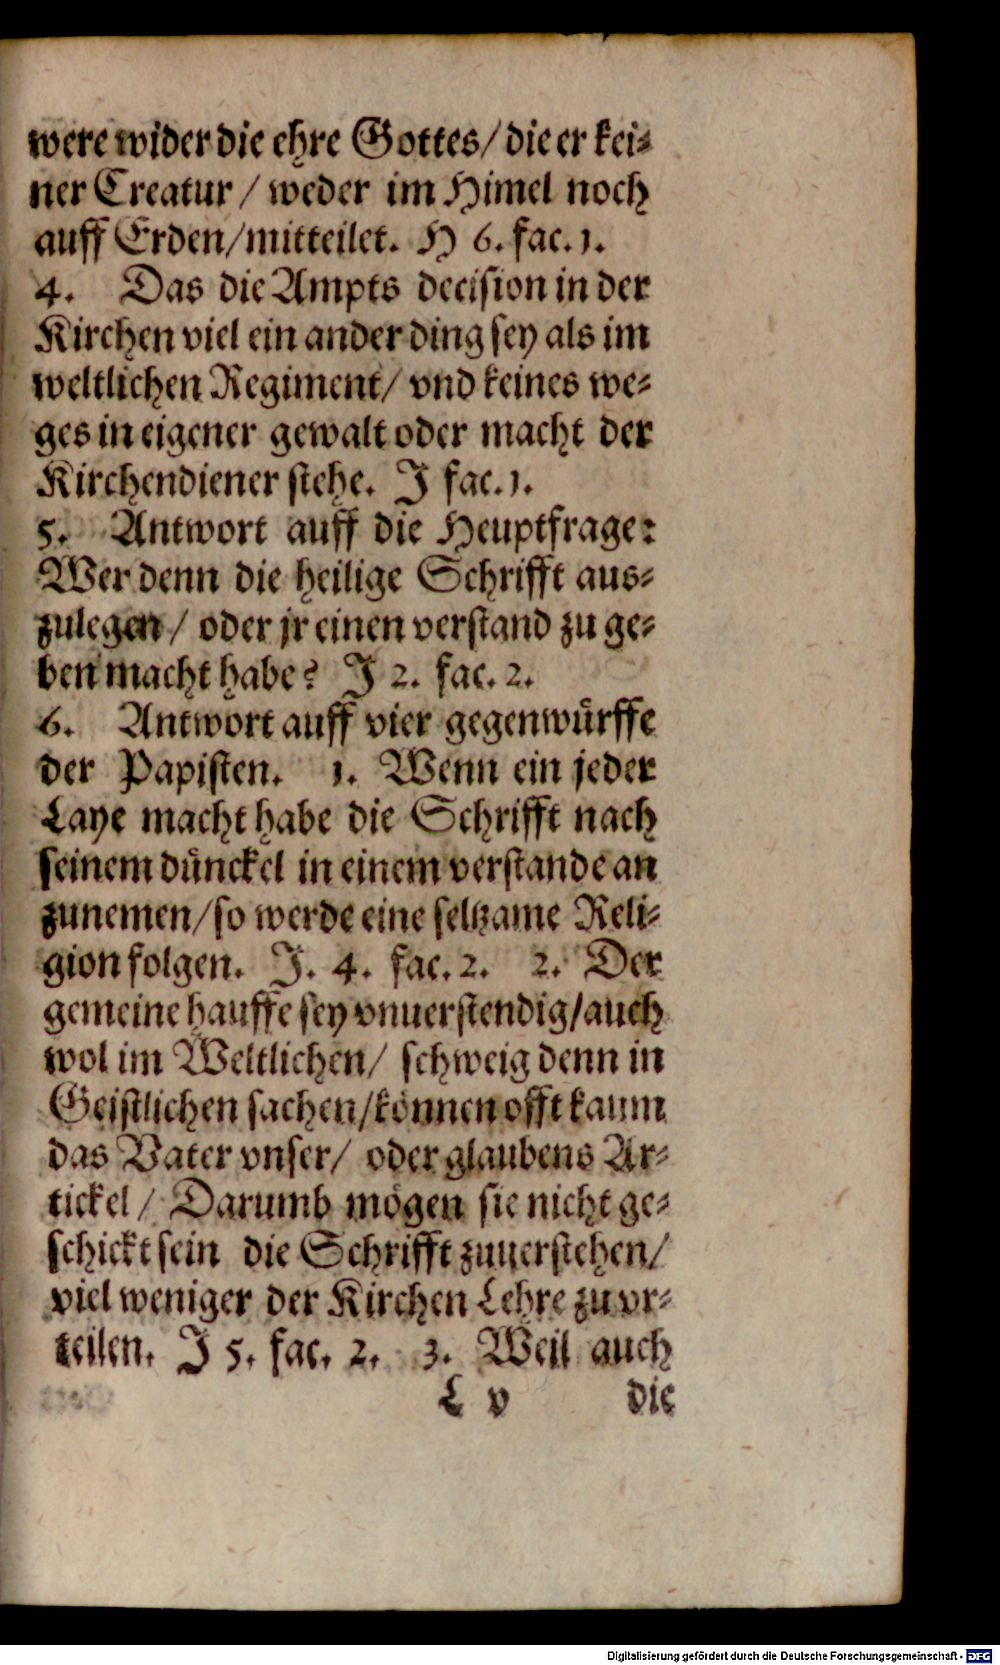 were wider die ehre Gottes/ die er kei⸗
ner Creatur / weder im Himel noch
auff Erden/mitteilet. H 6. fac. 1.
4. Das die Ampts decision in der
Kirchen viel ein ander ding sey als im
weltlichen Regiment/ vnd keines we⸗
ges in eigener gewalt oder macht der
Kirchendiener stehe. J fac. 1.
5. Antwort auff die Heuptfrage:
Wer denn die heilige Schrifft aus⸗
zulegen / oder jr einen verstand zu ge⸗
ben macht habe? J 2. fac. 2.
6. Antwort auff vier gegenwürffe
der Papisten. 1. Wenn ein jeder
Laye macht habe die Schrifft nach
seinem dünckel in einem verstande an
zunemen/so werde eine seltzame Reli⸗
gion folgen. J. 4. fac. 2. 2. Der
gemeine hauffe sey vnuerstendig/auch
wol im Weltlichen/ schweig denn in
Geistlichen sachen/können offt kaum
das Vater vnser/ oder glaubens Ar⸗
tickel / Darumb mögen sie nicht ge⸗
schickt sein die Schrifft zuuerstehen/
viel weniger der Kirchen Lehre zu vr⸗
teilen. J 5. fac. 2. 3. Weil auch
L v die
Digitalisierung gefördert durch die Deutsche Forschungsgemeinschaft - DFG